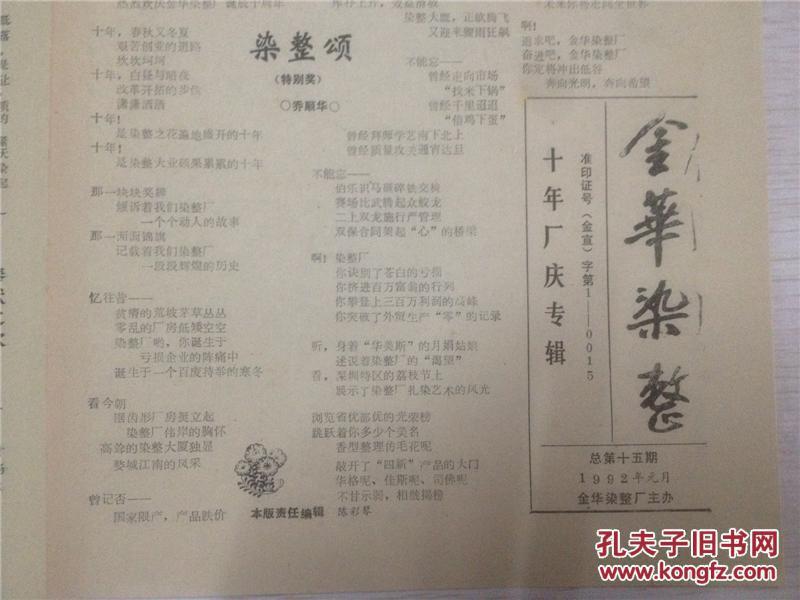 染整颂
(特别奖)
○乔顺华○
十年，春秋又冬夏
艰苦创业的道路
坎坎坷坷
十年，白昼与暗夜
改革开拓的步伐
潇潇洒洒
十年！
是染整之花遍地盛开的十年
十年！
是染整大业硕果累累的十年
那一块块奖牌
倾诉着我们染整厂
一个个动人的故事
那一面面锦旗
记载着我们染整厂
一段段辉煌的历史
忆往昔——
贫瘠的荒坡茅草丛丛
零乱的厂房低矮空空
染整厂哟，你诞生于
亏损企业的阵痛中
诞生于一个百废待举的寒冬
看今朝
锯齿形厂房挺立起
染整厂伟岸的胸怀
高耸的染整大厦独显
婺城江南的风采
曾记否——
国家限产，产品跌价
染整大鹏，正欲腾飞
又迎来骤雨狂飙
不能忘——
曾经走向市场
“找米下锅”
曾经千里迢迢
“借鸡下蛋”
曾经拜师学艺南下北上
曾经质量攻关通宵达旦
不能忘——
伯乐识马砸碎铁交椅
赛场比武腾起众蛟龙
二上双龙施行严管理
双保合同架起“心”的桥梁
啊！染整厂
你诀别了苍白的亏损
你挤进百万富翁的行列
你攀登上三百万利润的高峰
你突破了外贸生产“零”的记录
听，身着“华美斯”的月娟姑娘
述说着染整厂的“渴望”
看，深圳特区的荔枝节上
展示了染整厂扎染艺术的风光
浏览省优部优的光荣榜
跳跃着你多少个美名
香型整理仿毛花呢
敲开了“四新”产品的大门
华格呢、佳斯呢、司佛呢
不甘示弱，相继揭榜
啊！
追求吧，金华染整厂
奋进吧，金华染整厂
你定将冲出低谷
奔向光明，奔向希望
本版责任编辑 陈彩琴
金華染整
准印证号（金宣）字第1—0015
十年厂庆专辑
总第十五期
1992年元月
金华染整厂主办
孔夫子旧书网
www.kongfz.com